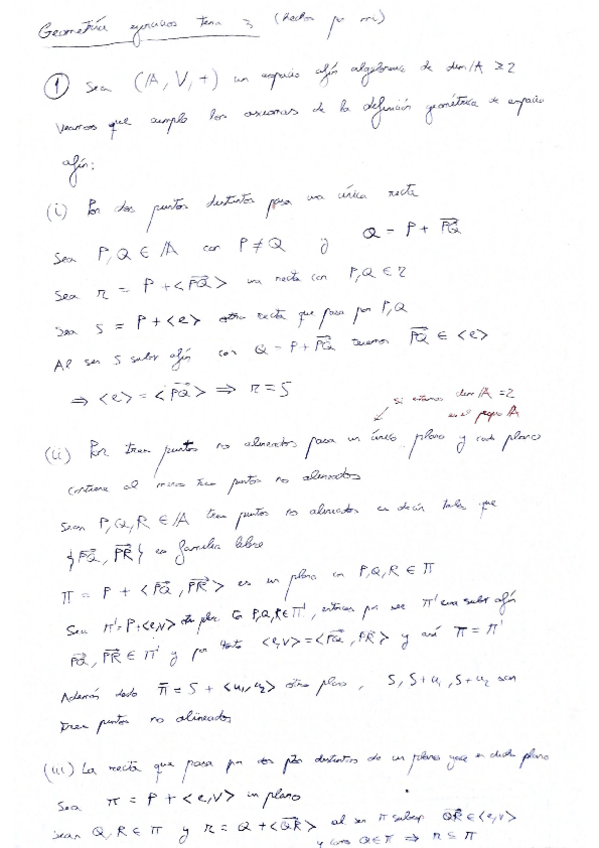 Geometría ejercicios tema 3 (hechos por mi)
① Sea (A, V, +) un espacio afín algebraico de dim A ≥ 2
Veamos que cumple los axiomas de la definición geométrica de espacio
afín:
(i) Por dos puntos distintos pasa una única recta
Sea P, Q ∈ A con P ≠ Q y Q = P + \overrightarrow{PQ}
Sea r = P + <\overrightarrow{PQ}> una recta con P, Q ∈ r
Sea s = P + <e> otra recta que pasa por P, Q
Al ser s subv afín con Q = P + \overrightarrow{PQ} tenemos \overrightarrow{PQ} ∈ <e>
⇒ <e> = <\overrightarrow{PQ}> ⇒ r = s
si estamos dim A = 2
es el propio A
(ii) Por tres puntos no alineados pasa un único plano y cada plano
contiene al menos tres puntos no alineados
Sean P, Q, R ∈ A tres puntos no alineados es decir tales que
{\overrightarrow{PQ}, \overrightarrow{PR}} es familia libre
π = P + <\overrightarrow{PQ}, \overrightarrow{PR}> es un plano con P, Q, R ∈ π
Sea π' = P + <e, v> otro plano con P, Q, R ∈ π', entonces por ser π' un subv afín
\overrightarrow{PQ}, \overrightarrow{PR} ∈ π' y por tanto <e, v> = <\overrightarrow{PQ}, \overrightarrow{PR}> y así π = π'
Además dado π̄ = S + <u₁, u₂> otro plano, S, S + u₁, S + u₂ son
tres puntos no alineados
(iii) La recta que pasa por dos ptos distintos de un plano yace en dicho plano
Sea π = P + <e, v> un plano
Sean Q, R ∈ π y r = Q + <\overrightarrow{QR}> al ser π subesp \overrightarrow{QR} ∈ <e, v>
y como Q ∈ π ⇒ r ⊆ π